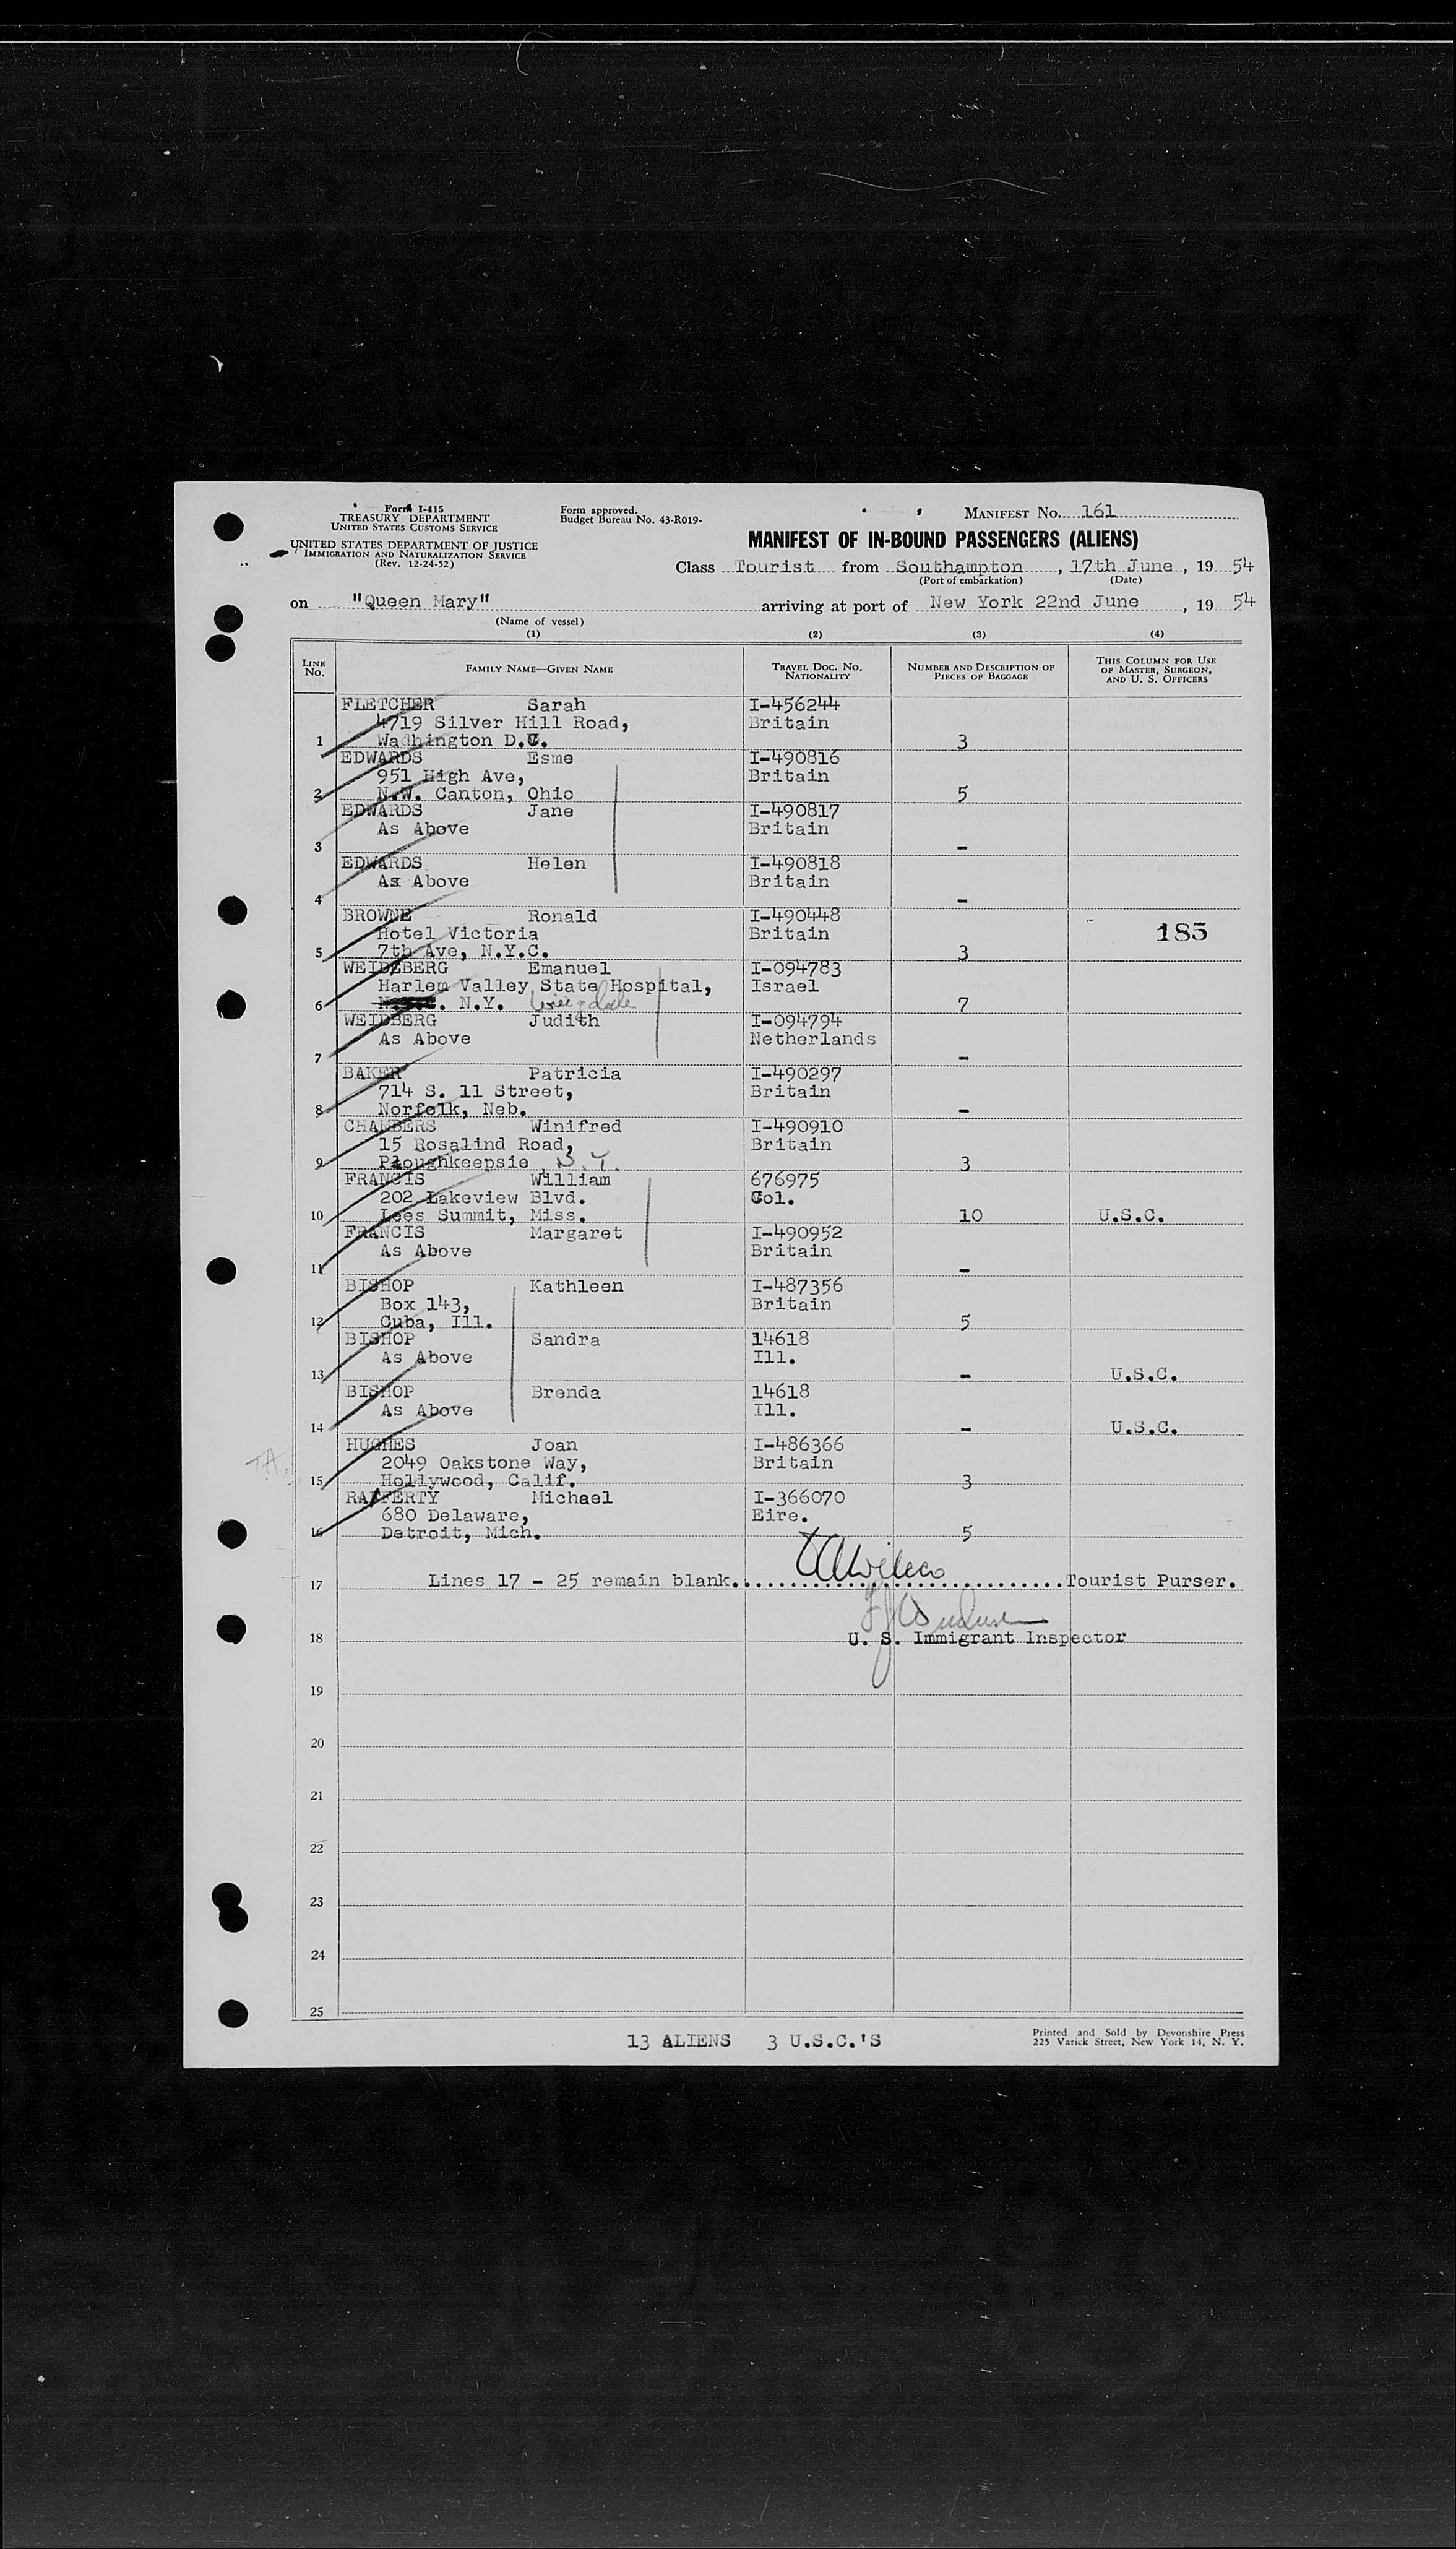 Form I-415
TREASURY DEPARTMENT
UNITED STATES CUSTOMS SERVICE
UNITED STATES DEPARTMENT OF JUSTICE
IMMIGRATION AND NATURALIZATION SERVICE
(Rev. 12-24-52)
Form approved.
Budget Bureau No. 43-R019-
MANIFEST NO. 161
MANIFEST OF IN-BOUND PASSENGERS (ALIENS)
Class Tourist from Southampton, 17th June, 19 54
(Port of embarkation) (Date)
on "Queen Mary" arriving at port of New York 22nd June, 19 54
(Name of vessel)
(1) (2) (3) (4)
LINE NO. FAMILY NAME—GIVEN NAME TRAVEL DOC. NO. NATIONALITY NUMBER AND DESCRIPTION OF PIECES OF BAGGAGE THIS COLUMN FOR USE OF MASTER, SURGEON, AND U. S. OFFICERS
FLETCHER Sarah I-456244
4719 Silver Hill Road, Britain
1 Wadhington D.C. 3
EDWARDS Esme I-490816
951 High Ave, Britain
2 N.W. Canton, Ohio 5
EDWARDS Jane I-490817
As Above Britain
3 -
EDWARDS Helen I-490818
As Above Britain
4 -
BROWNE Ronald I-490448
Hotel Victoria Britain 185
5 7th Ave, N.Y.C. 3
WEIDBERG Emanuel I-094783
Harlem Valley State Hospital, Israel
6 N.Y. Wingdale 7
WEIDBERG Judith I-094794
As Above Netherlands
7 -
BAKER Patricia I-490297
714 S. 11 Street, Britain
8 Norfolk, Neb. -
CHAMBERS Winifred I-490910
15 Rosalind Road, Britain
9 Ploughkeepsie, N.Y. 3
FRANCIS William 676975
202 Lakeview Blvd. Col.
10 Lees Summit, Miss. 10 U.S.C.
FRANCIS Margaret I-490952
As Above Britain
11 -
BISHOP Kathleen I-487356
Box 143, Britain
12 Cuba, Ill. 5
BISHOP Sandra 14618
As Above Ill.
13 - U.S.C.
BISHOP Brenda 14618
As Above Ill.
14 - U.S.C.
HUGHES Joan I-486366
TA 2049 Oakstone Way, Britain
15 Hollywood, Calif. 3
RAFFERTY Michael I-366070
680 Delaware, Eire.
16 Detroit, Mich. 5
17 Lines 17 - 25 remain blank. Tourist Purser.
18 U. S. Immigrant Inspector
19
20
21
22
23
24
25
13 ALIENS 3 U.S.C.'S
Printed and Sold by Devonshire Press
225 Varick Street, New York 14, N. Y.